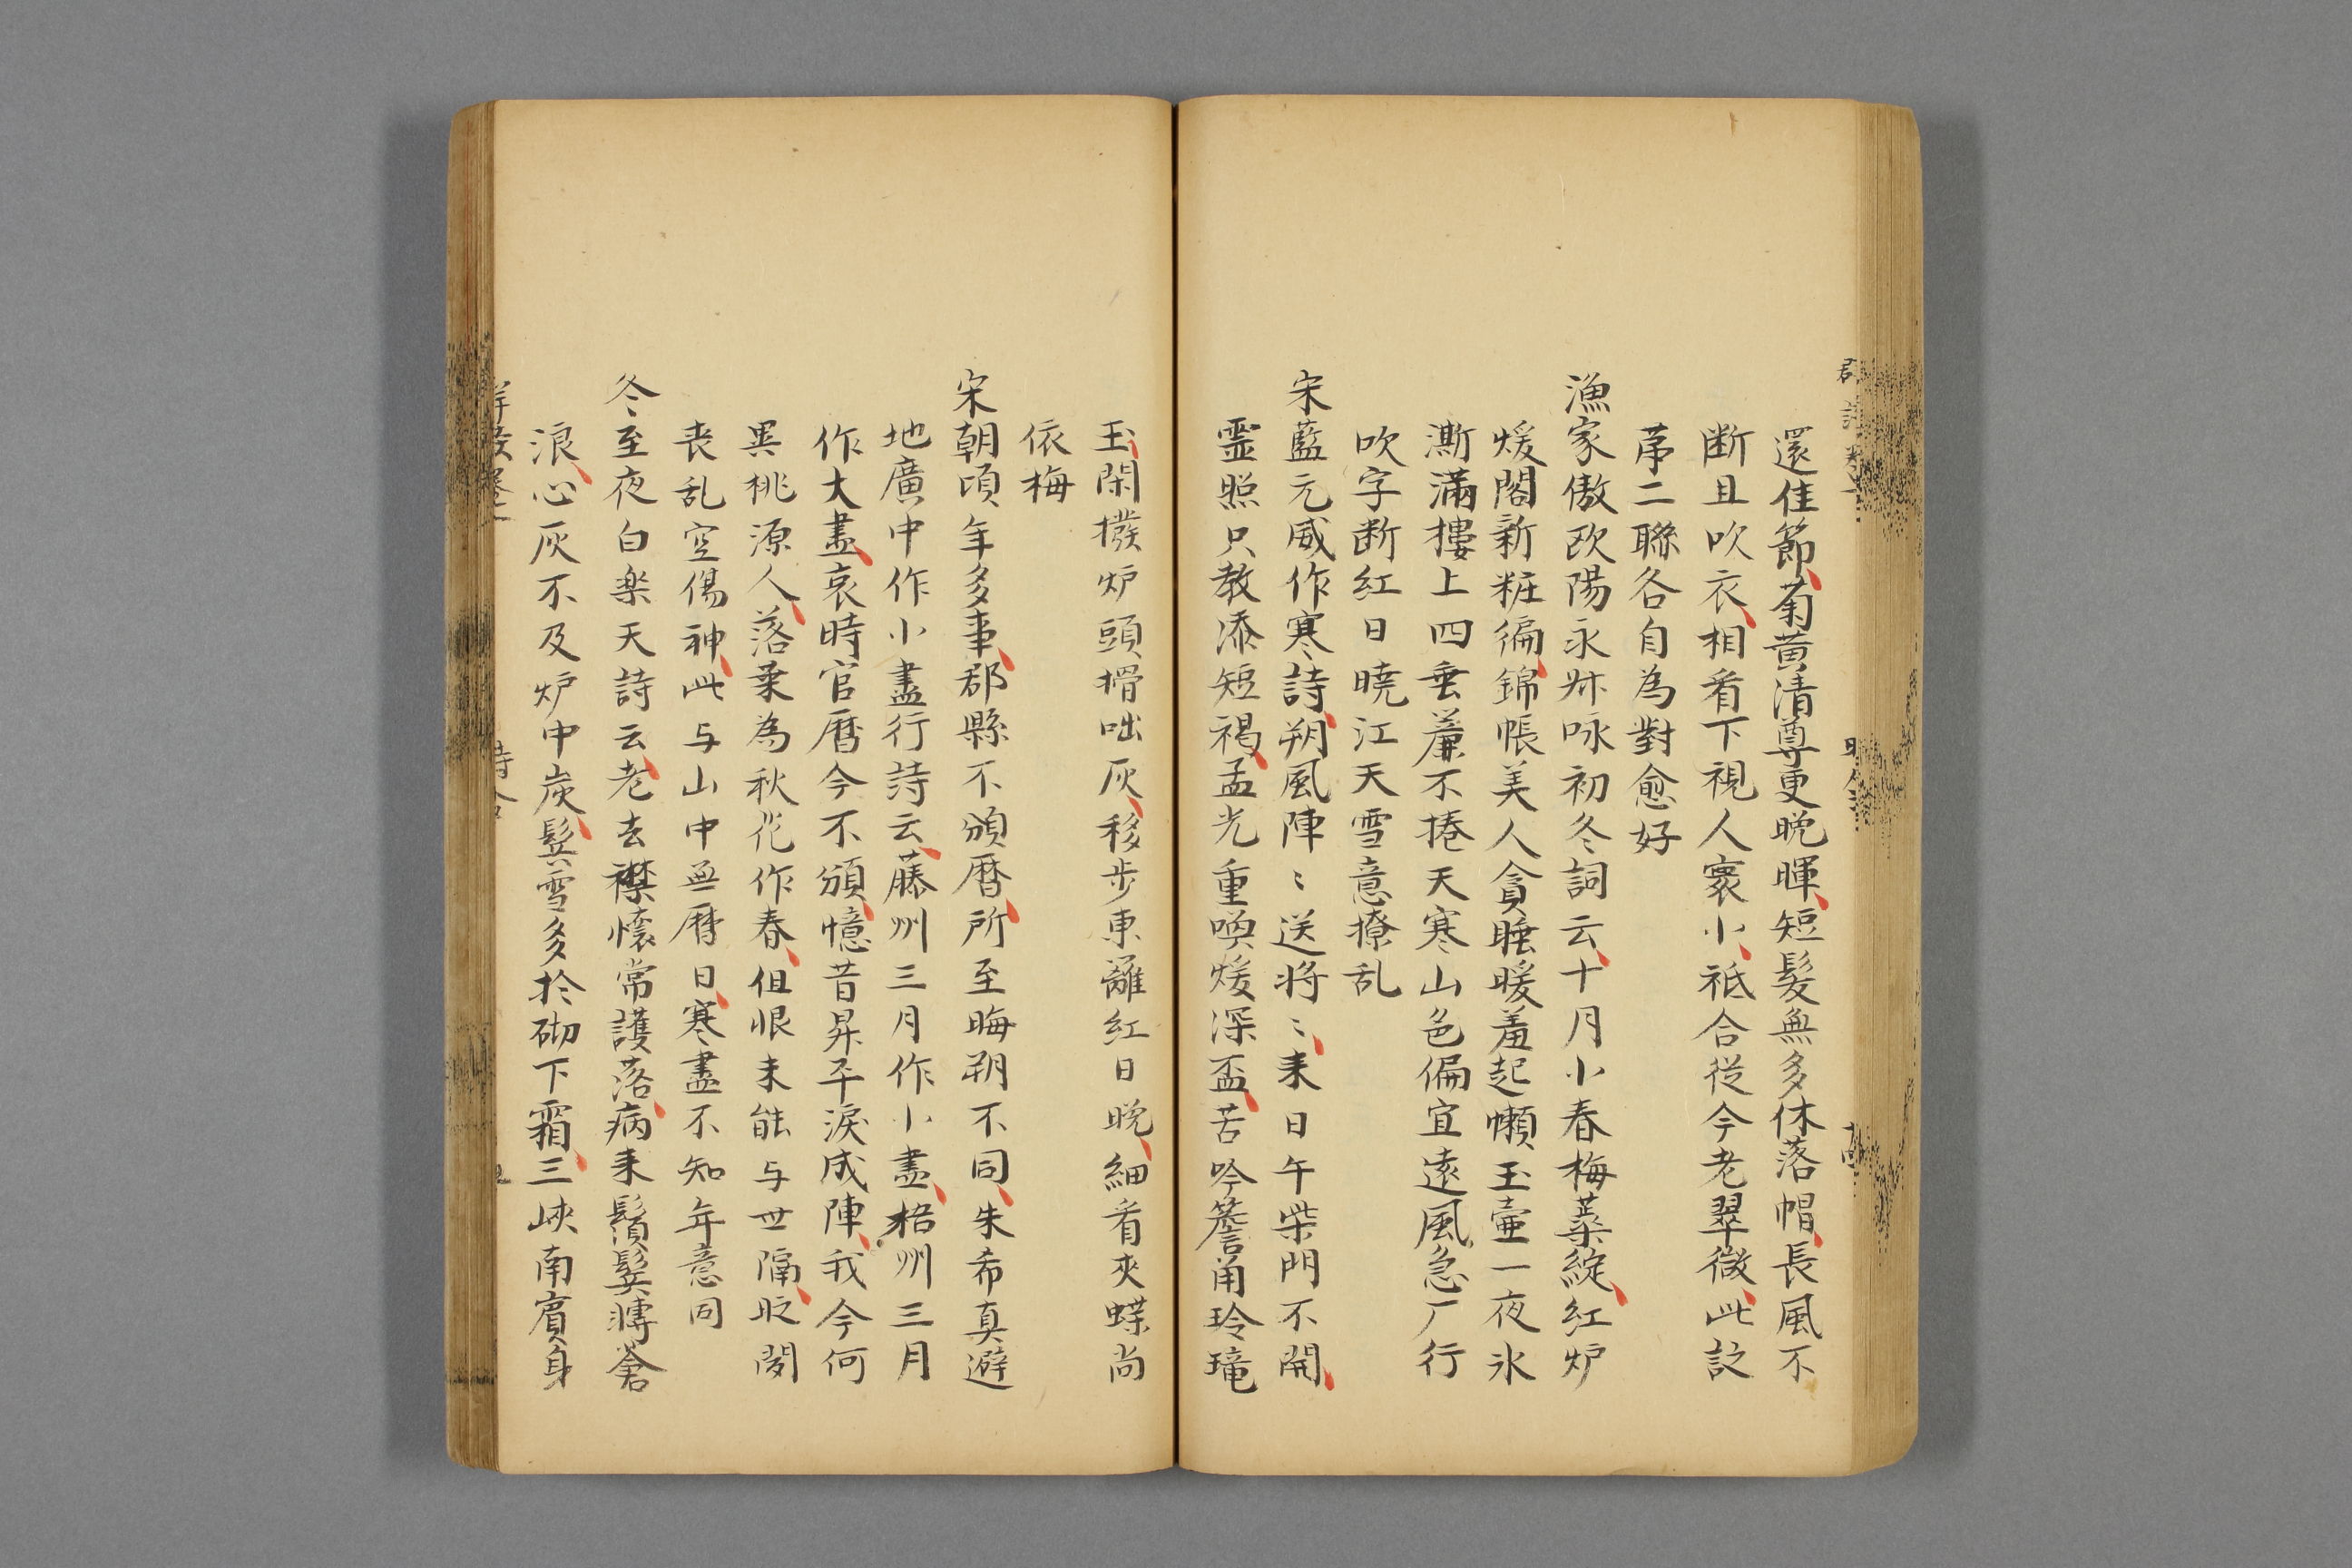 還佳節菊黃清尊更晩暉短髮無多休落帽長風不
断且吹衣相看下視人寰小祗合従今老翠微此詩
苐二聯各自為對愈好
漁家傲欧陽永叔咏初冬詞云十月小春梅蘂綻紅炉
煖閣新粧徧錦帳美人貪睡暖羞起懶玉壷一夜氷
澌滿摟上四垂簾不捲天寒山色偏宜遠風急厂行
吹字断紅日曉江天雪意撩乱
宋藍元威作寒詩朔風陣〻送将〻来日午柴門不開
霊照只教添短褐孟光重喚煖深盃苦吟簷甬玲瓏
玉閑撥炉頭榾咄灰移步東籬紅日晩細看夾蝶尚
依梅
宋朝頃年多事郡縣不頒暦所至晦朔不同朱希真避
地廣中作小盡行詩云藤州三月作小盡梧州三月
作大盡哀時官暦今不頒憶昔昇平淚成陣我今何
異桃源人落葉為秋花作春但恨未能与世隔眨閔
丧乱空傷神此与山中無暦日寒盡不知年意同
冬至夜白楽天詩云老去襟懷常護落病来鬚鬓轉蒼
浪心灰不及炉中炭鬓雪多於砌下霜三峽南賓身